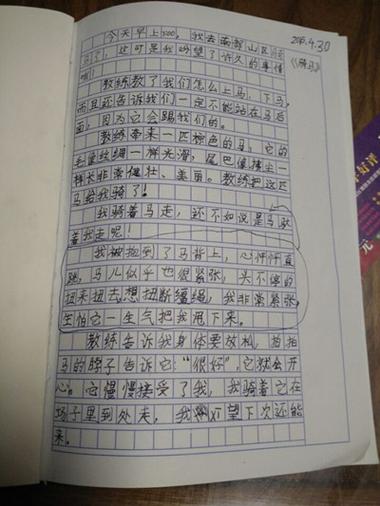 2017.4.30
《骑马》
今天早上8:00，我去南部山区
了，这可是我盼望了许久的事情
啦！
教练教了我们怎么上马，下马，
而且还告诉我们一定不能站在马后
面，因为它会踢我们的。
教练牵来一匹棕色的马，它的
毛像绸缎一样光滑，尾巴像掸尘一
样长非常健壮、美丽。教练把这匹
马给我骑了！
我骑着马走，还不如说是马驮
着我走呢！
我被抱到了马背上，心怦怦直
跳，马儿似乎也很紧张，头不停的
扭来扭去想扭断缰绳，我非常紧张，
生怕它一生气把我甩下来。
教练告诉我身体要放松，拍拍
马的脖子告诉它“很好”，它就会开
心。它慢慢接受了我，我骑着它在
场子里到处走，我盼望下次还能
来。
元